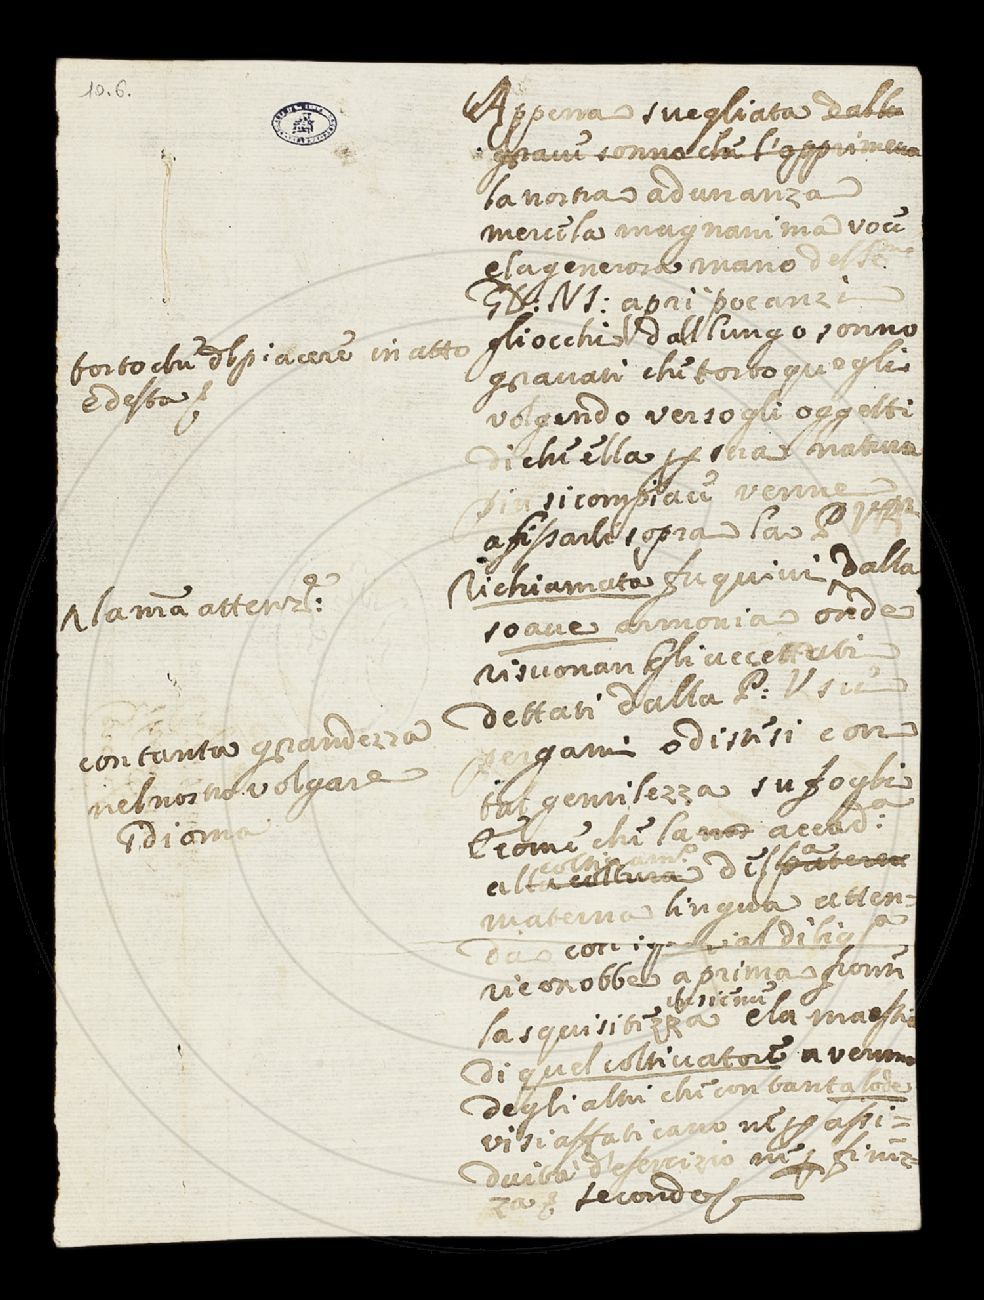 10.6.
Appena svegliata dalla
grave sonno che l'opprimeva
la nostra adunanza
mercè la magnanima voce
e la generosa mano del Ser.mo
G.D: N.S: aprì poc anzi
gli occhi dal lungo sonno
gravati che tosto quegli
volgendo verso gli oggetti
di che ella per sua natura
più si compiace venne
a fissarle sopra la P.
richiamata fu quivi dalla
soave armonia onde
risuonan gli
dettati dalla P: V. su i
pergami o distesi con
tal gentilezza su fogli
E come che la nos accad.a
alla coltura coltivam.o della paterna
materna lingua atten=
da con igual dilig.a
riconobbe a prima
la squisitezza insieme e la maestria
di quel coltivatore a
degli altri che con tanta lode
vi si affaticano nè per assi=
duità d'esercizio nè per finez=
za secondo
tosto che del piacere in atto
è desta
la mia attenz.e:
con tanta grandezza
nel nostro volgare
Idioma